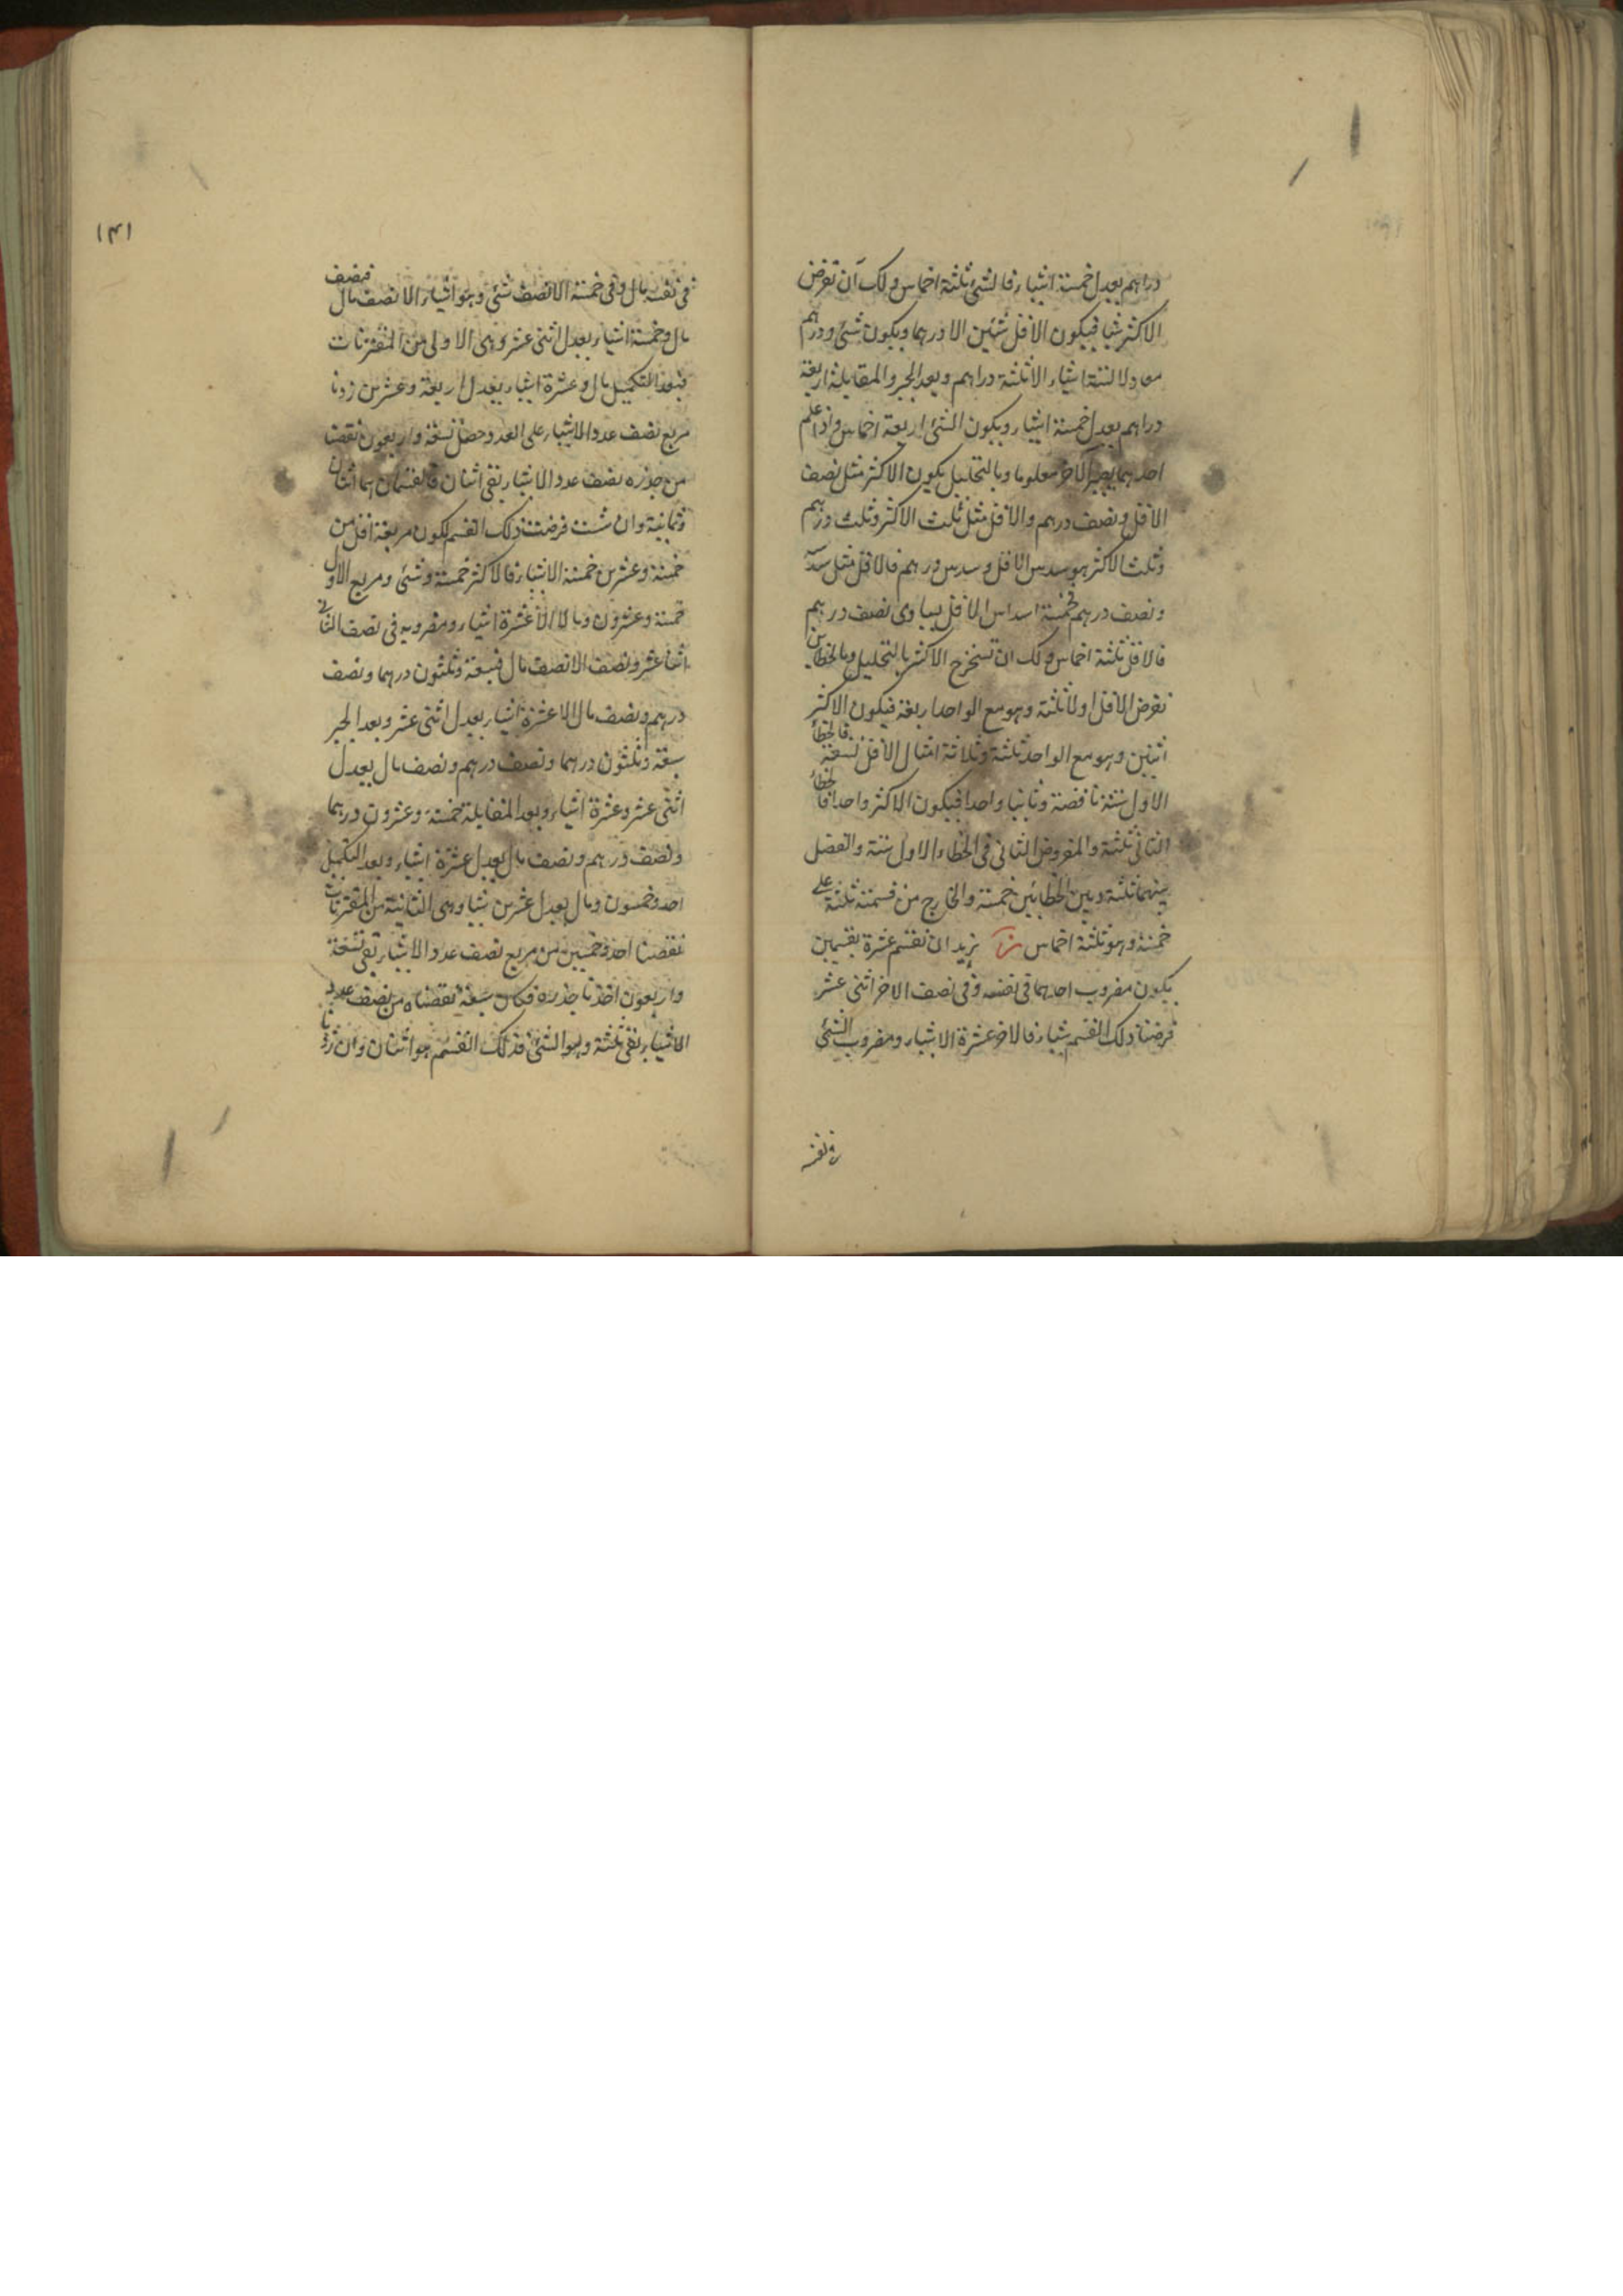 دراهم يعدل خمسة اشياء فالشئ ثلثة اخماس ولك ان تفرض
الاكثر شيئا فيكون الاقل شئين الا درهما ويكون شئ ودرهم
معادلا لستة اشياء الا ثلثة دراهم وبعد الجبر والمقابلة اربعة
دراهم يعدل خمسة اشياء ويكون الشئ اربعة اخماس واذا علم
احدهما يصير الاخر معلوما وبالتحليل يكون الاكثر مثل نصف
الاقل ونصف درهم والاقل مثل ثلث الاكثر وثلث درهم
وثلث الاكثر هو سدس الاقل وسدس درهم فالاقل مثل سدسه
ونصف درهم فخمسة اسداس الاقل يساوى نصف درهم
فالاقل ثلثة اخماس ولك ان تستخرج الاكثر بالتحليل وبالخطاين
نفرض الاقل اولا ثلثة وهو مع الواحد اربعة فيكون الاكثر
اثنين وهو مع الواحد ثلثة وثلاثة امثال الاقل تسعة فالخطأ
الاول ستة ناقصة وثانيا واحدا فيكون الاكثر واحدا فالخطأ
الثانى ثلثة والمفروض الثانى فى الخطاء الاول ستة والفضل
بينهما ثلثة وبين الخطائين خمسة والخارج من قسمة ثلثة على
خمسة وهو ثلثة اخماس نريد ان نقسم عشرة بقسمين
يكون مضروب احدهما فى نفسه وفى نصف الاخر اثنى عشر
فرضنا ذلك القسم شيئا فالاخر عشرة الا شيئا ومضروب الشئ
فى نفسه
١٤١
فى نفسه مال وفى خمسة الا نصف شئ وهو اشياء الا نصف مال فنصف
مال وخمسة اشياء يعدل اثنى عشر وهى الاولى من المقترنات
فبعد التكميل مال وعشرة اشياء يعدل اربعة وعشرين زدنا
مربع نصف عدد الاشياء على العدد حصل تسعة واربعون نقصنا
من جذره نصف عدد الاشياء بقى اثنان فالقسمان هما اثنان
وثمانية وان شئت فرضت ذلك القسم لكون مربعه اقل من
خمسة وعشرين خمسة الا شيئا فالاكثر خمسة وشئ ومربع الاول
خمسة وعشرون ومالا الا عشرة اشياء ومضروبه فى نصف الثانى
اثنا عشر ونصف الا نصف مال فسبعة وثلثون درهما ونصف
درهم ونصف مال الا عشرة اشياء يعدل اثنى عشر وبعد الجبر
سبعة وثلثون درهما ونصف درهم ونصف مال يعدل
اثنى عشر وعشرة اشياء وبعد المقابلة خمسة وعشرون درهما
ونصف درهم ونصف مال يعدل عشرة اشياء وبعد التكميل
احد وخمسون ومال يعدل عشرين شيئا وهى الثانية من المقترنات
نقصنا احد وخمسين من مربع نصف عدد الاشياء بقى تسعة
واربعون اخذنا جذره فكان سبعة نقصناه من نصف عدد
الاشياء بقى ثلثة وهو الشئ فذلك القسم هو اثنان وان زدنا